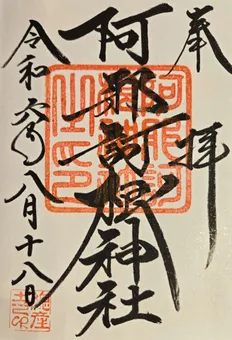 奉拝
阿邪訶根神社
令和六年八月十八日